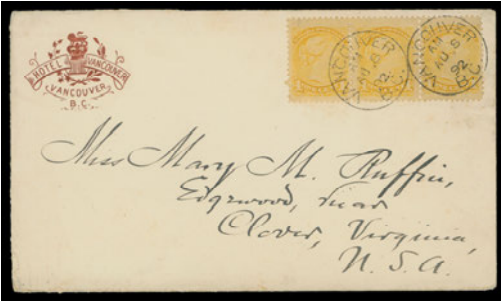 HOTEL VANCOUVER
VANCOUVER
B.C.
VANCOUVER
AM
92
B.C.
VANCOUVER
AM
92
B.C.
Miss Mary M. Ruffin,
Edgewood, near
Clover, Virginia,
U.S.A.